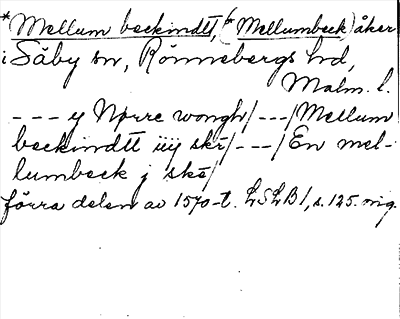 *Mellum beckindtt, (*Mellumbeck) åker
i Säby sn, Rönnebergs hd,
Malm. l.
--- y Nørre wongh/---/Mellum
beckindtt iiij skr/---/En mel-
lumbeck j ske/
förra delen av 1570-t. LSLB1, s. 125. mig.